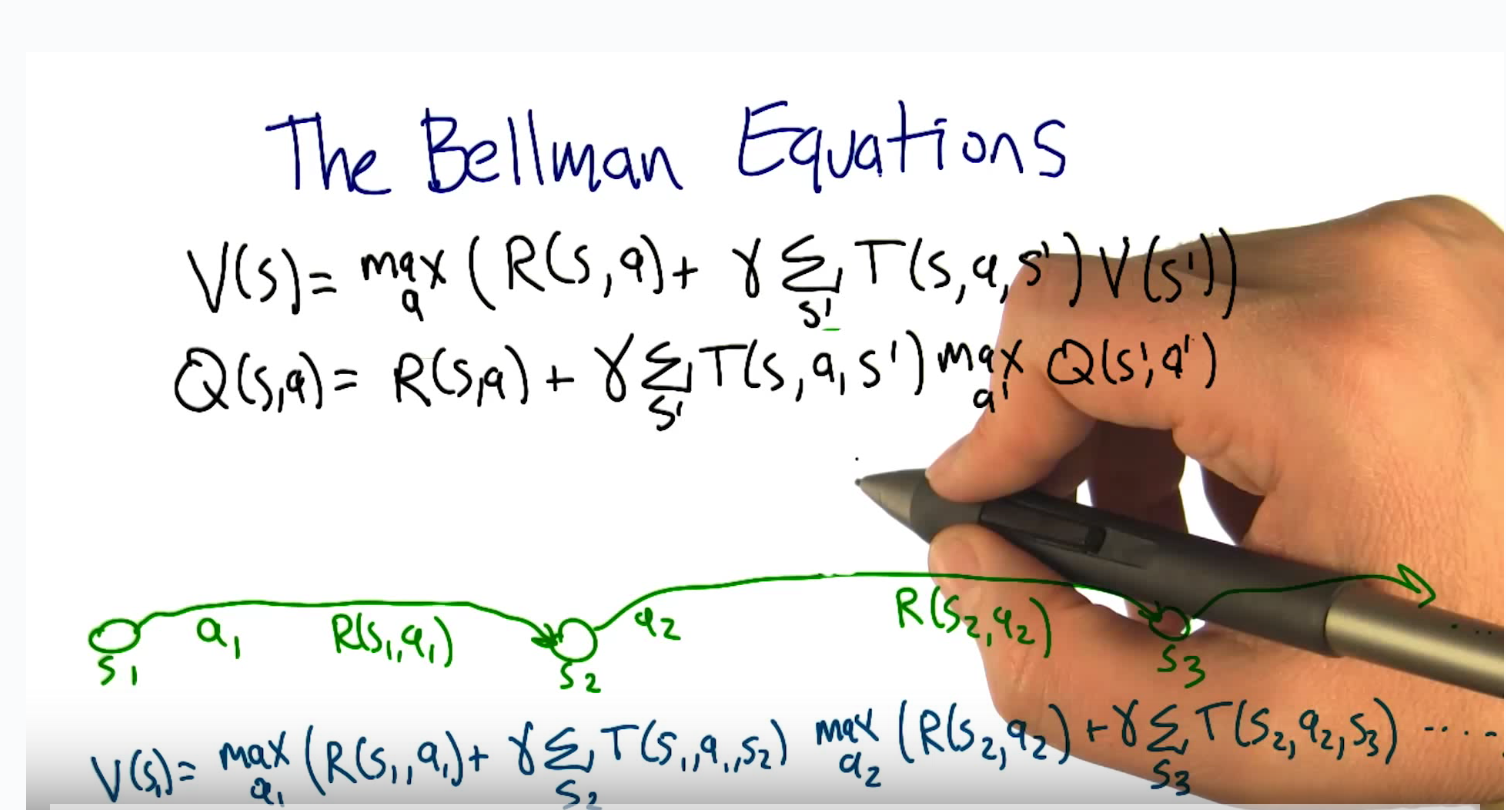 The Bellman Equations
V(s) = max_a (R(s,a) + γ Σ_s' T(s,a,s') V(s'))
Q(s,a) = R(s,a) + γ Σ_s' T(s,a,s') max_a' Q(s',a')
a₁ R(s₁,a₁) a₂ R(s₂,a₂)
s₁ s₂ s₃ ....
V(s₁) = max_a₁ (R(s₁,a₁) + γ Σ_s₂ T(s₁,a₁,s₂) max_a₂ (R(s₂,a₂) + γ Σ_s₃ T(s₂,a₂,s₃) ....